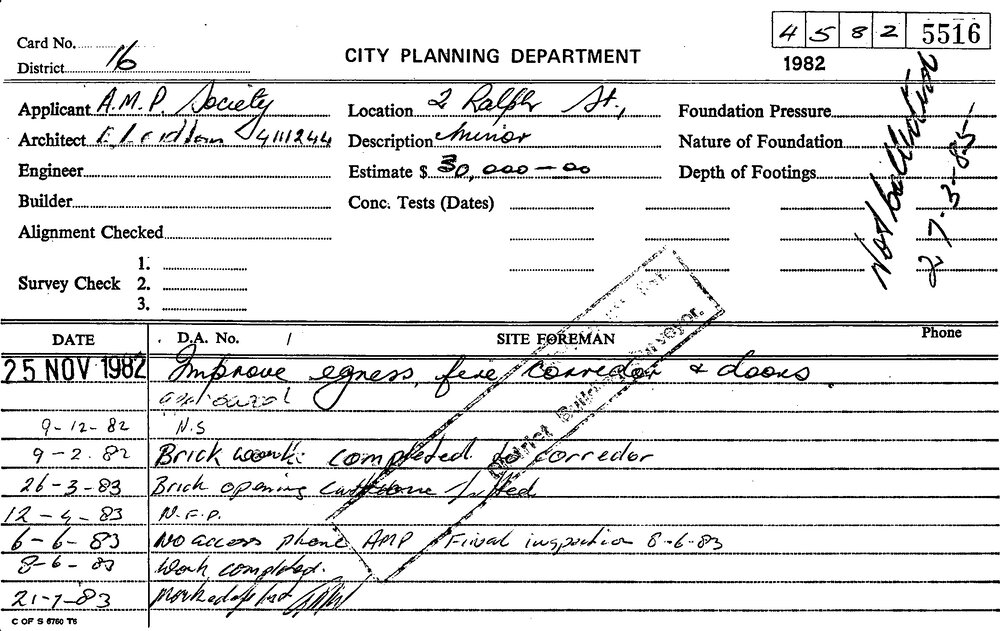 4 5 8 2 5516
Card No.
District 16
CITY PLANNING DEPARTMENT
1982
Applicant A.M.P. Society
Location 2 Ralph St.,
Foundation Pressure
Architect 4111244
Description Minor
Nature of Foundation
Engineer
Estimate $ 30,000-00
Depth of Footings
Builder
Conc. Tests (Dates)
Alignment Checked
Survey Check
1.
2.
3.
27-3-85
DATE
D.A. No. /
SITE FOREMAN
Phone
25 NOV 1982 Improve egress, fire corredor & doors.
9-12-82 N.S
9-2.82 Brick work completed to corredor
26-3-83 Brick opening
12-4-83 N.F.P.
6-6-83 No access phone AMP Final inspection 8-6-83
8-6-83 Work completed.
21-7-83
District Building Surveyor.
C OF S 6760 T6